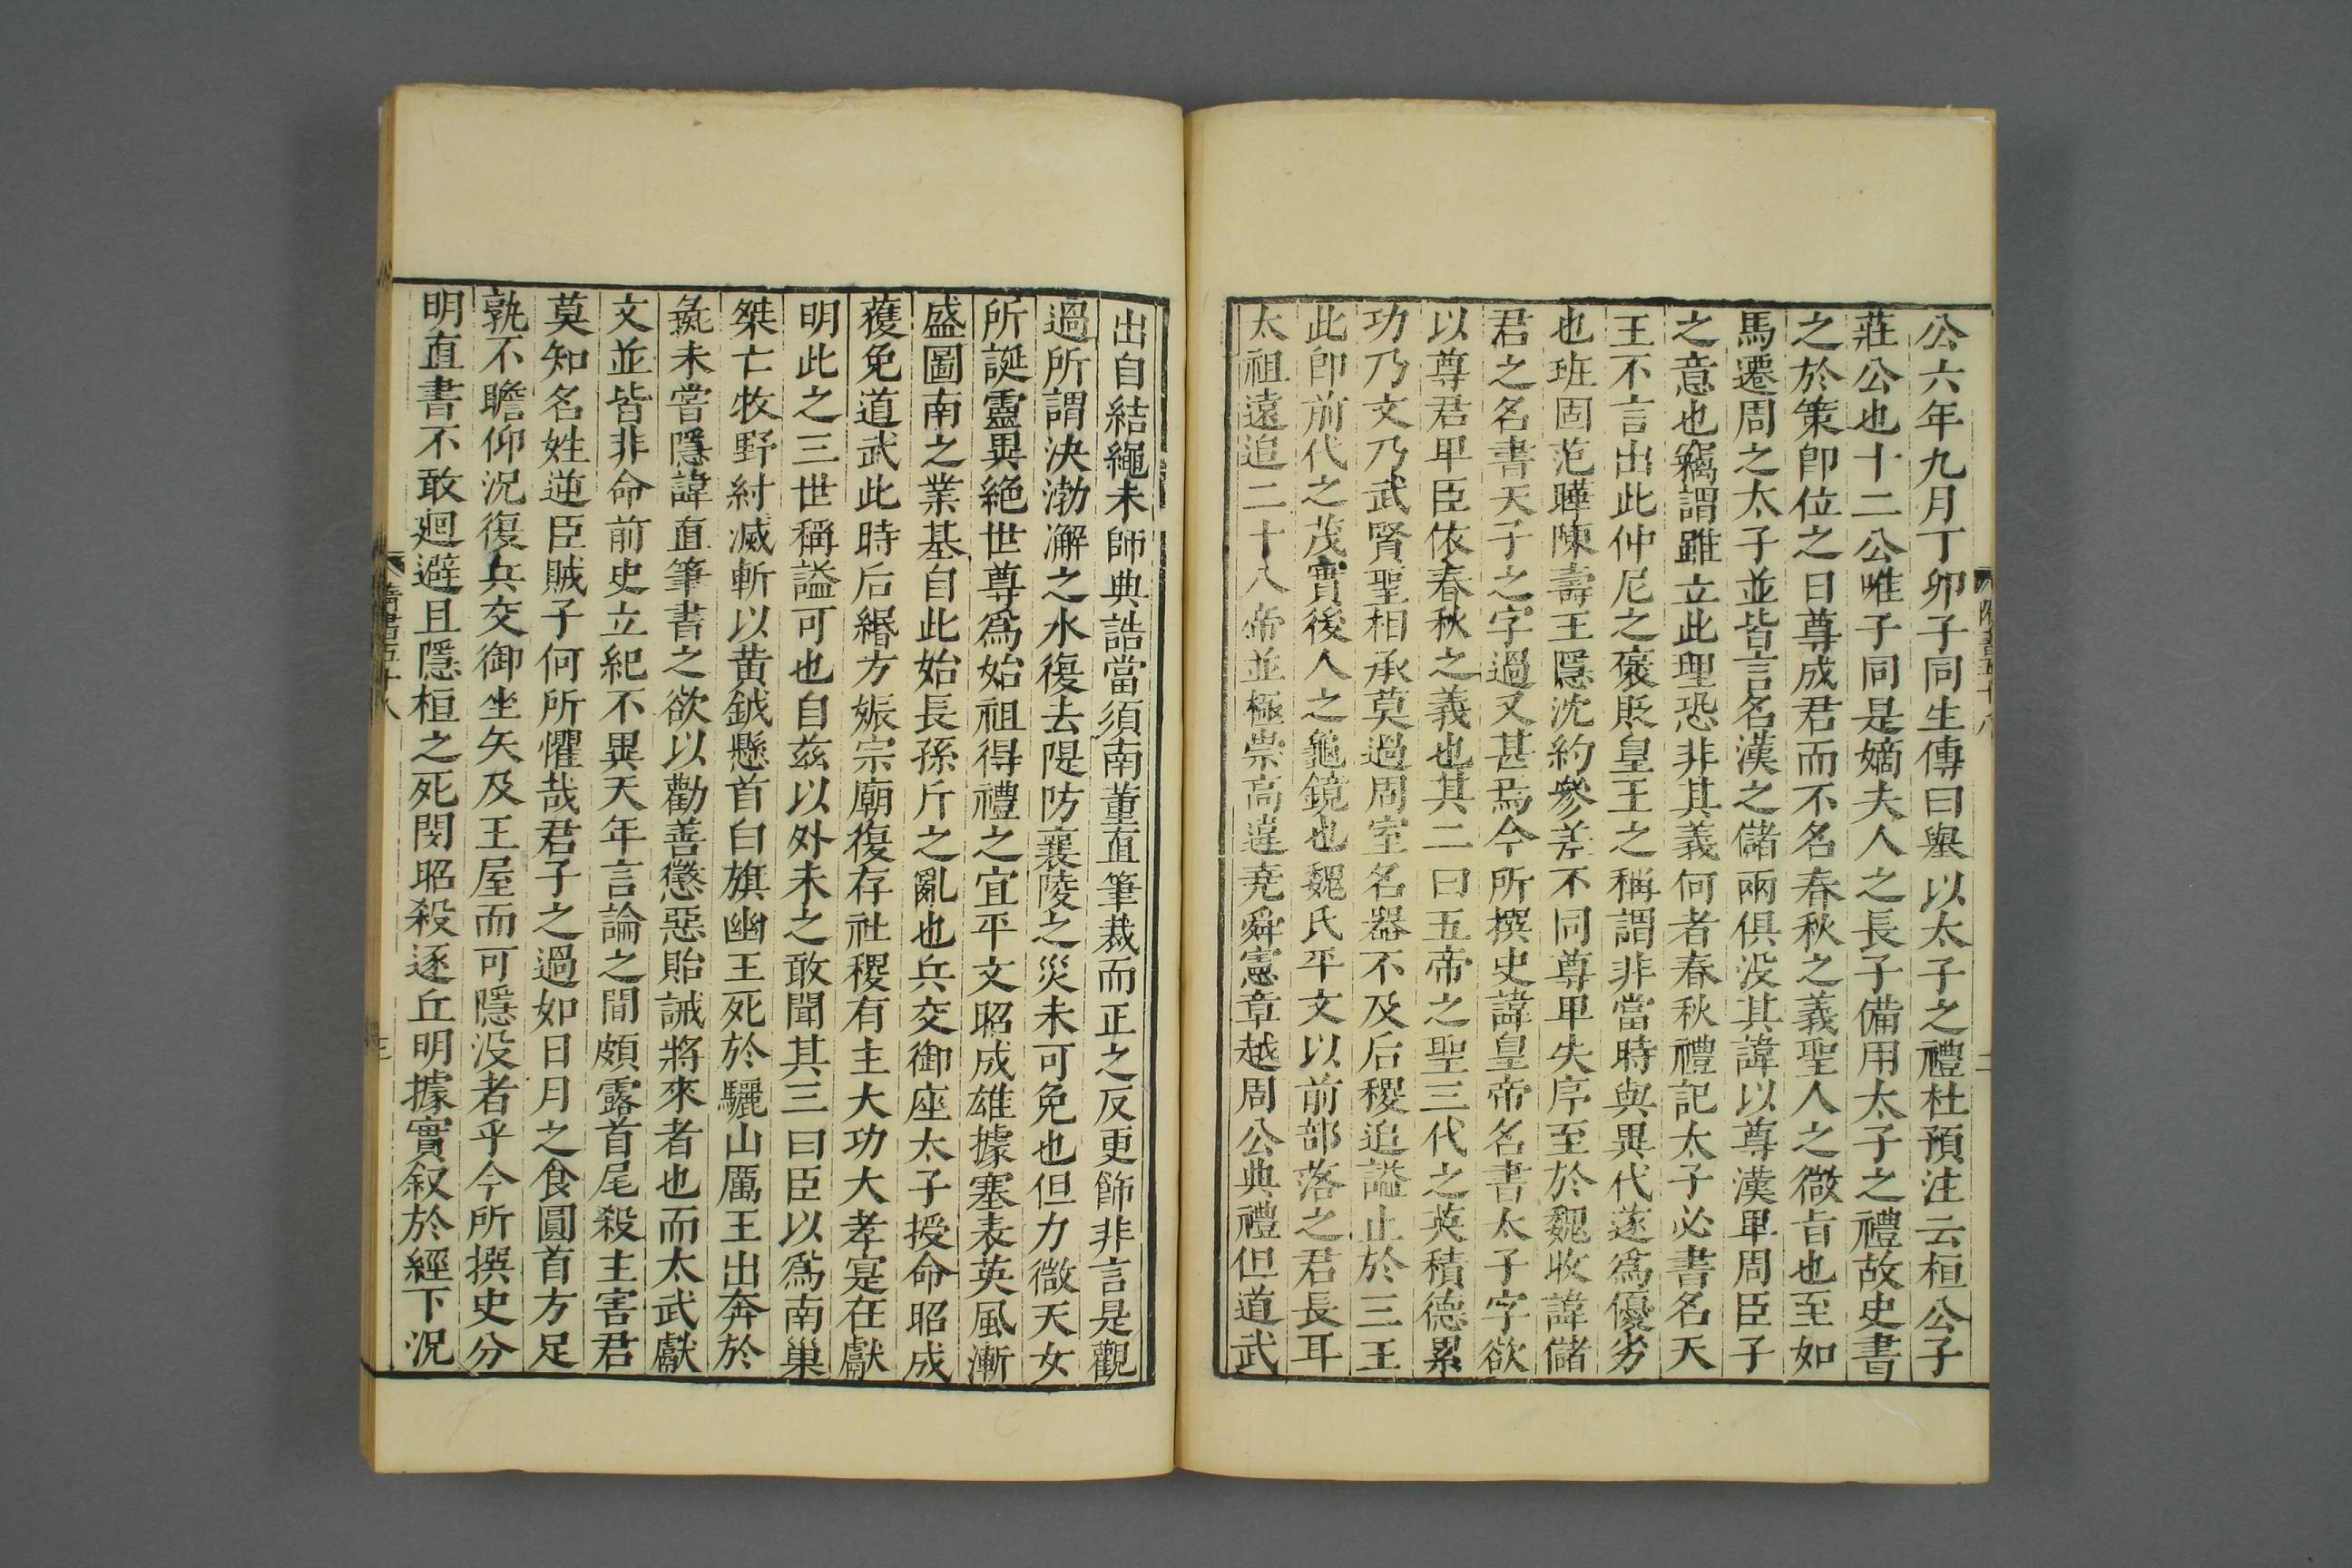 公六年九月丁卯子同生傳曰舉以太子之禮杜預注云桓公子
莊公也十二公唯子同是嫡夫人之長子備用太子之禮故史書
之於策即位之日尊成君而不名春秋之義聖人之微旨也至如
馬遷周之太子並皆言名漢之儲兩俱没其諱以尊漢卑周臣子
之意也竊謂雖立此理恐非其義何者春秋禮記太子必書名天
王不言出此仲尼之襃貶皇王之稱謂非當時與異代遂爲優劣
也班固范曄陳壽王隱沈約參差不同尊卑失序至於魏收諱儲
君之名書天子之字過又甚焉今所撰史諱皇帝名書太子字欲
以尊君卑臣依春秋之義也其二曰五帝之聖三代之英積德累
功乃文乃武賢聖相承莫過周室名器不及后稷追謚止於三王
此即前代之茂實後人之龜鏡也魏氏平文以前部落之君長耳
太祖遠追二十八帝並極崇高違堯舜憲章越周公典禮但道武
出自結繩未師典誥當須南董直筆裁而正之反更飾非言是觀
過所謂決渤澥之水復去隄防襄陵之災未可免也但力微天女
所誕靈異絶世尊爲始祖得禮之宜平文昭成雄據塞表英風漸
盛圖南之業基自此始長孫斤之亂也兵交御座太子授命昭成
獲免道武此時后緡方娠宗廟復存社稷有主大功大孝寔在獻
明此之三世稱謚可也自茲以外未之敢聞其三曰臣以爲南巢
桀亡牧野紂滅斬以黄鉞懸首白旗幽王死於驪山厲王出奔於
彘未嘗隱諱直筆書之欲以勸善懲惡貽誡將來者也而太武獻
文並皆非命前史立紀不異天年言論之間頗露首尾殺主害君
莫知名姓逆臣賊子何所懼哉君子之過如日月之食圓首方足
孰不瞻仰況復兵交御坐矢及王屋而可隱没者乎今所撰史分
明直書不敢迴避且隱桓之死閔昭殺逐丘明據實叙於經下況